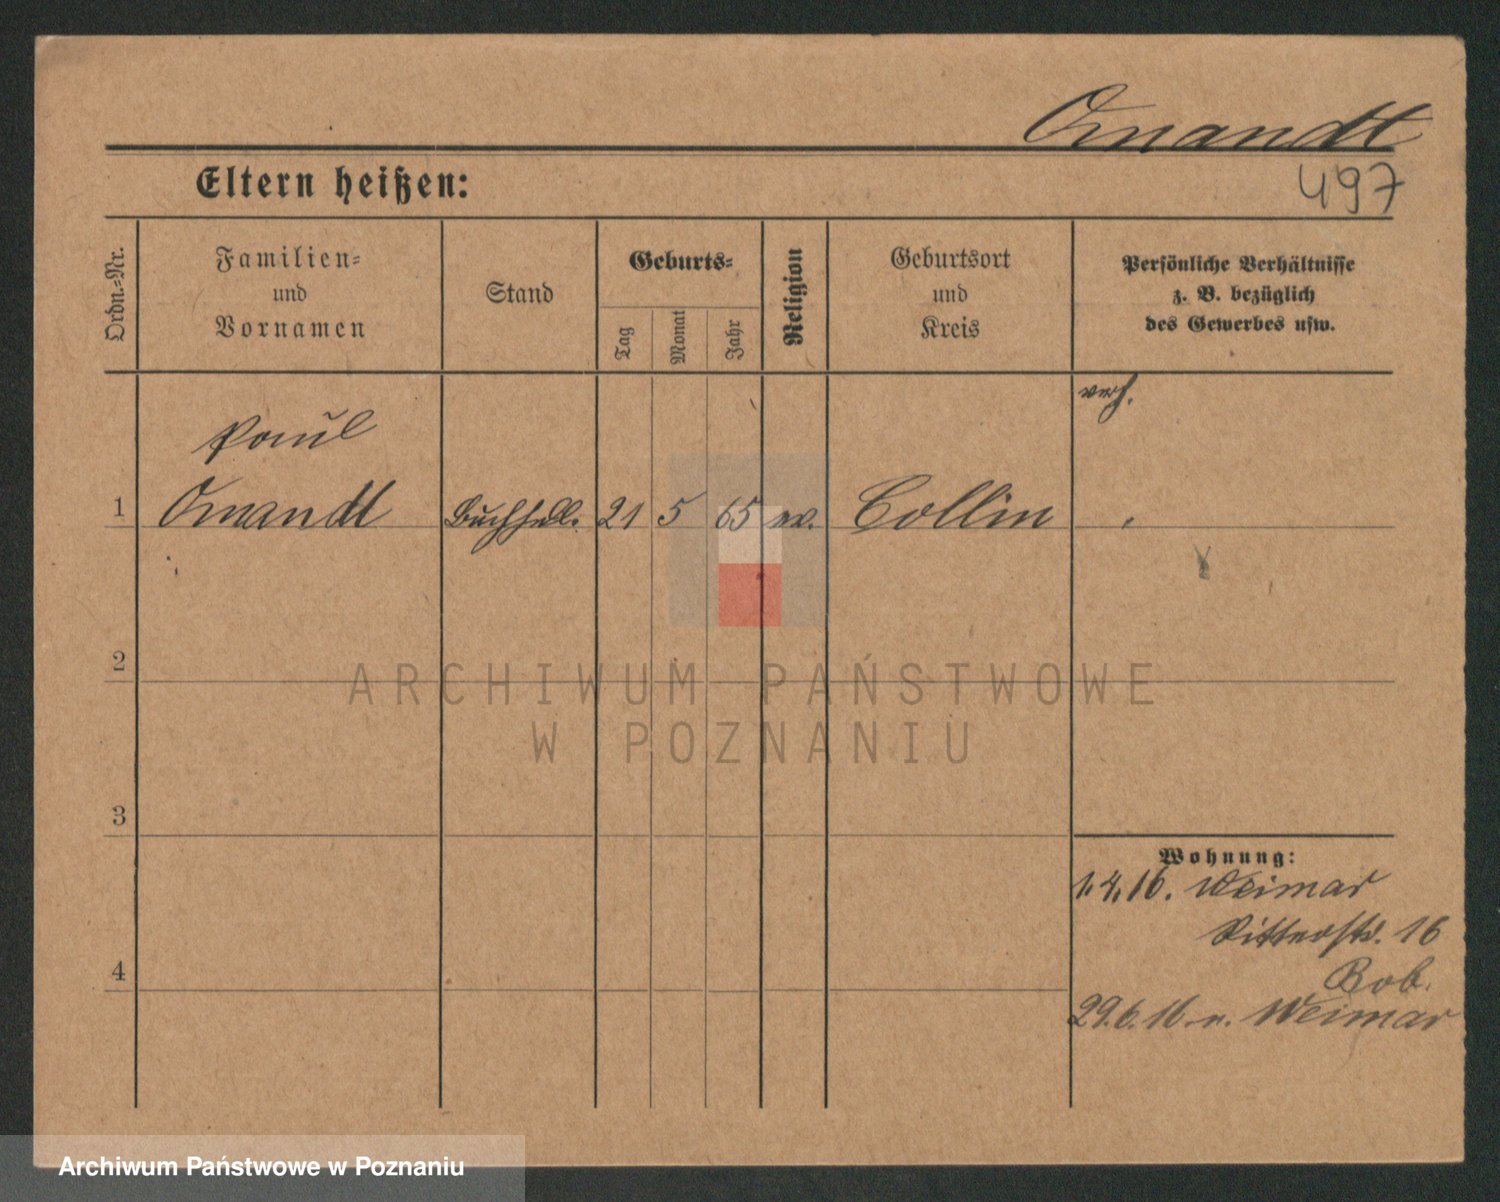 Omandt
497
Eltern heißen:
Ordn.-Nr.
Familien-
und
Vornamen
Stand
Geburts-
Tag
Monat
Jahr
Religion
Geburtsort
und
Kreis
Persönliche Verhältnisse
z. B. bezüglich
des Gewerbes usw.
verh.
Paul
1 Omandt Buchhalt. 21 5 65 ev. Collin
2
3
4
Wohnung:
1.4.16. Weimar
Ritterstr. 16
Bob.
29.6.16. n. Weimar
ARCHIWUM PAŃSTWOWE
W POZNANIU
Archiwum Państwowe w Poznaniu